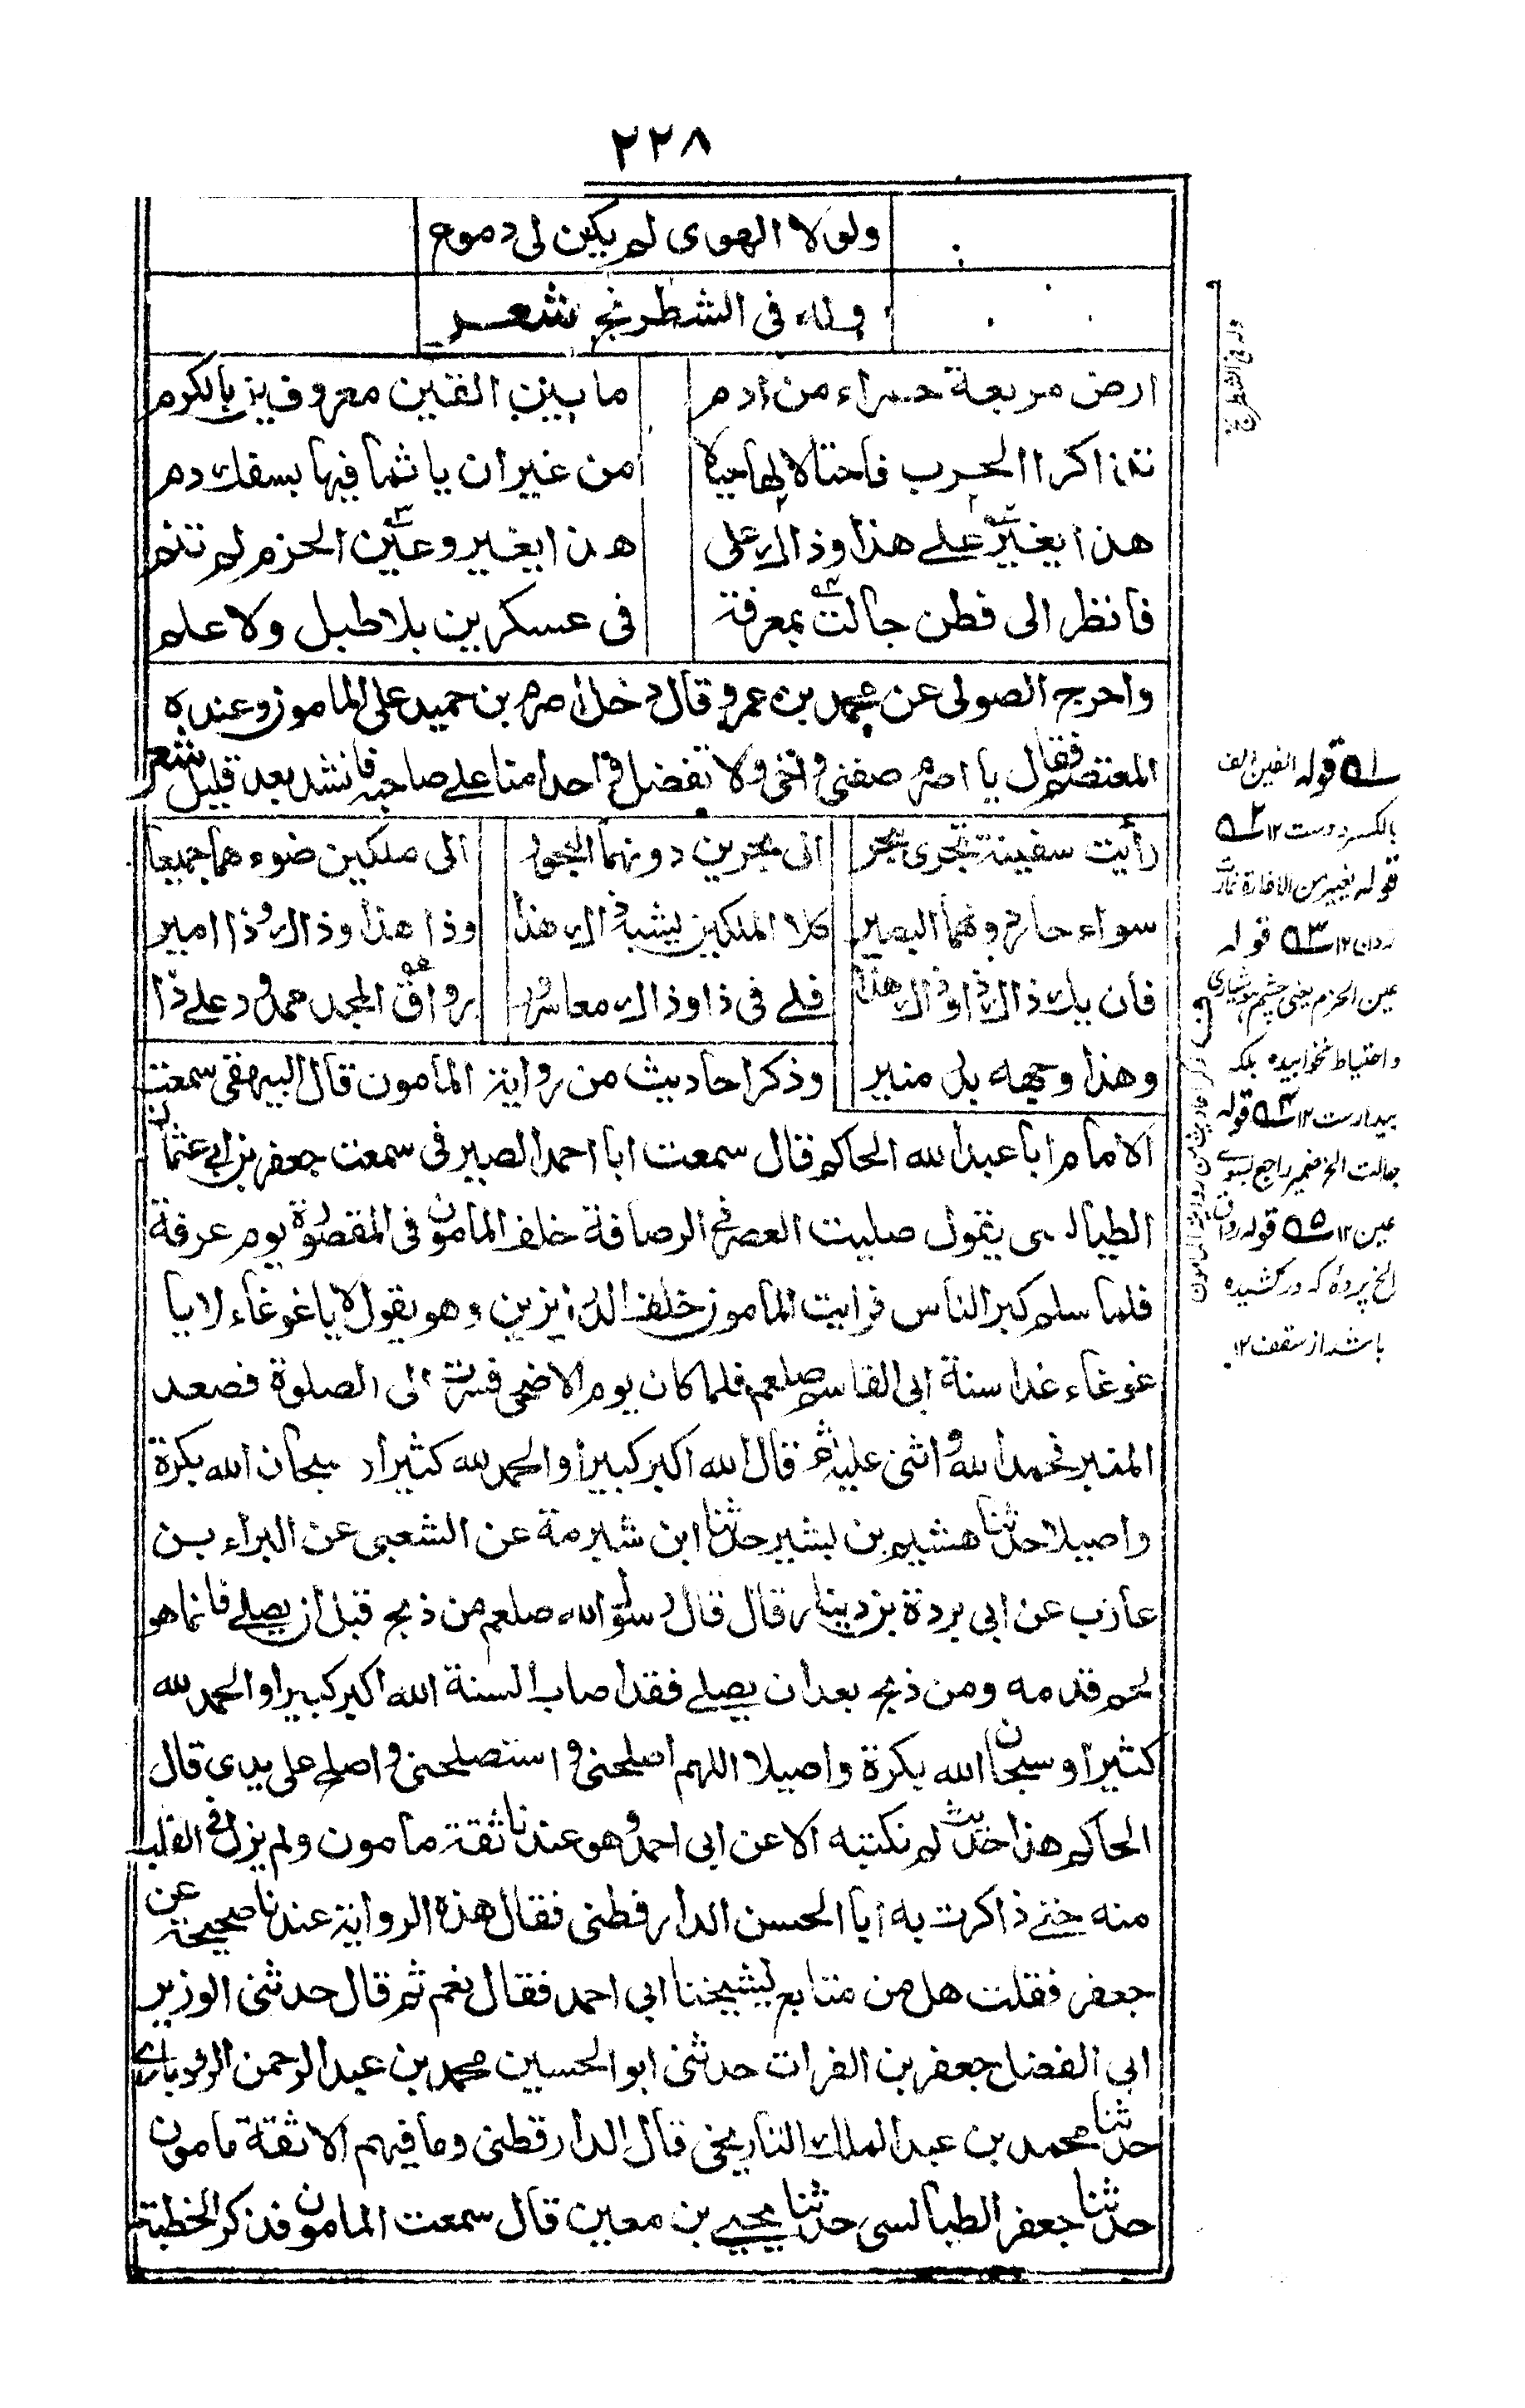 ٢٢٨
ولولا الهوى لم يكن لى دموع
وله فى الشطرنج شعر
ارض مربعة حمراء من ادم ما بين الفين معروفين بالكرم
تذاكرا الحرب فاحتالا لها حيلا من غير ان ياثما فيها بسفك دم
هذا يغير على هذا وذاك على هذا يغير وعين الحزم لم تنم
فانظر الى فطن جالت بمعرفة فى عسكرين بلا طبل ولا علم
واخرج الصولى عن محمد بن عمرو قال دخل اصرم بن حميد على المامون وعنده
المعتصم فقال يا اصرم صفنى واخى ولا تفضل واحدا منا على صاحبه فانشد بعد قليل شعر
رأيت سفينة تجرى ببحر الى بحرين دونهما البحور الى ملكين ضوءهما جميعا
سواء حار دونهما البصير كلا الملكين يشبه ذاك هذا وذا هذا وذاك وذا امير
فان يك ذاك ذا وذاك هذا فلى فى ذا وذاك معا سرور رواق المجد ممدود على ذا
وهذا وجهه بدر منير وذكر احاديث من رواية المامون قال البيهقى سمعت
الامام ابا عبد الله الحاكم قال سمعت ابا احمد الصيرفى سمعت جعفر بن ابى عثمان
الطيالسى يقول صليت العصر فى الرصافة خلف المامون فى المقصورة يوم عرفة
فلما سلم كبر الناس فرايت المامون خلف الدرابزين وهو يقول لا يا غوغاء لا يا
غوغاء غدا سنة ابى القاسم صلعم فلما كان يوم الاضحى فسرت الى الصلوة فصعد
المنبر فحمد الله واثنى عليه ثم قال الله اكبر كبيرا والحمد لله كثيرا و سبحان الله بكرة
واصيلا حدثنا هشيم بن بشير حدثنا ابن شبرمة عن الشعبى عن البراء بن
عازب عن ابى بردة بن دينار قال قال رسول الله صلعم من ذبح قبل ان يصلے فانما هو
لحم قدمه ومن ذبح بعد ان يصلے فقد اصاب السنة الله اكبر كبيرا والحمد لله
كثيرا وسبحان الله بكرة واصيلا اللهم اصلحنى واستصلحنى واصلح على يدى قال
الحاكم هذا حديث لم نكتبه الا عن ابى احمد وهو عندنا ثقة مامون ولم يزل فى القلب
منه حتے ذاكرت به ابا الحسن الدارقطنى فقال هذه الرواية عندنا صحيحة عن
جعفر فقلت هل من متابع لشيخنا ابى احمد فقال نعم ثم قال حدثنى الوزير
ابى الفضل جعفر بن الفرات حدثنى ابو الحسين محمد بن عبد الرحمن الروذبارے
حدثنا محمد بن عبد الملك التاريخى قال الدارقطنى وما فيهم الا ثقة مامون
حدثنا جعفر الطيالسى حدثنا يحيے بن معين قال سمعت المامون فذكر الخطبة
وله فى الشطرنج
ه١ قوله الفين الف
بالكسر دوست ١٢ ه٢
قوله يغير من الاغارة غارت
كردن ١٢ ه٣ قوله
عين الحزم يعنى چشم ہوشيارى
واحتياط نخوابيده بلكہ
بيدارست ١٢ ه٤ قوله
جالت الخ ضمير راجع بسوے
عين ١٢ ه٥ قوله رواق
الخ پرده كہ در كشيده
باشد از سقف ١٢